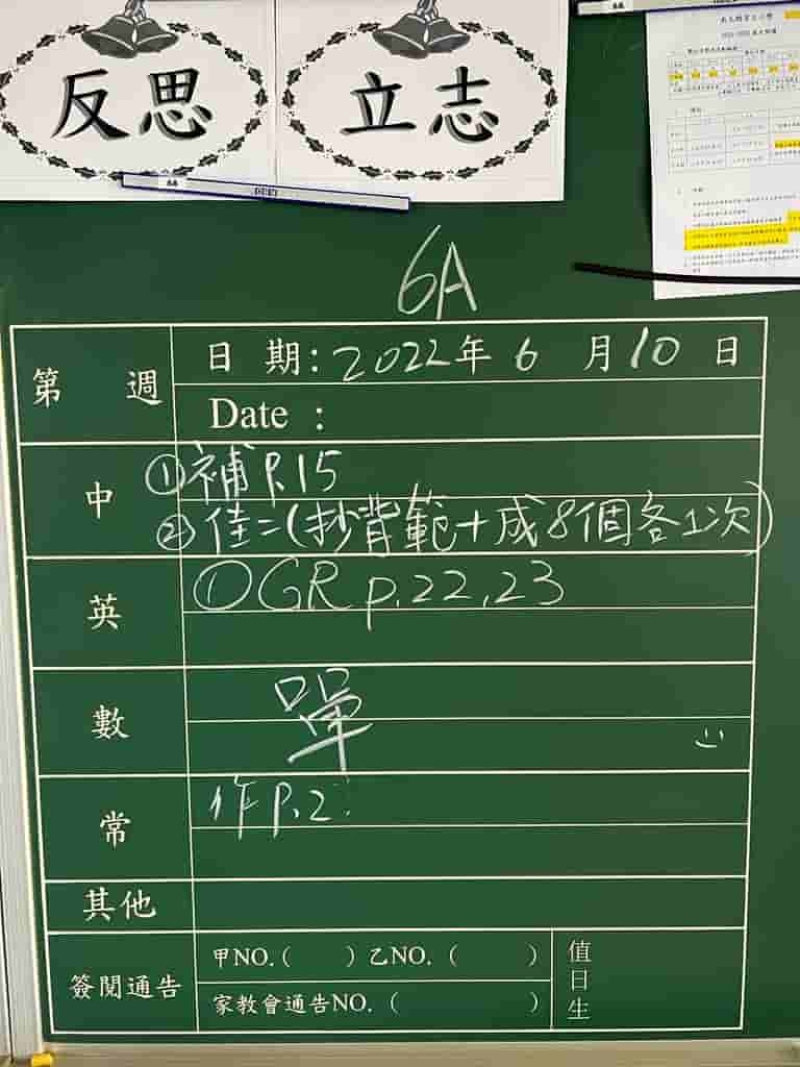 反思
立志
6A
第 週
日 期：2022年 6 月 10 日
Date ：
中
①補 P.15
②佳二(抄背範+成8個各1次)
英
①GR p.22,23
數
單
常
作 P.2
其他
簽閱通告
甲NO.( ) 乙NO. ( )
家教會通告NO. ( )
值日生